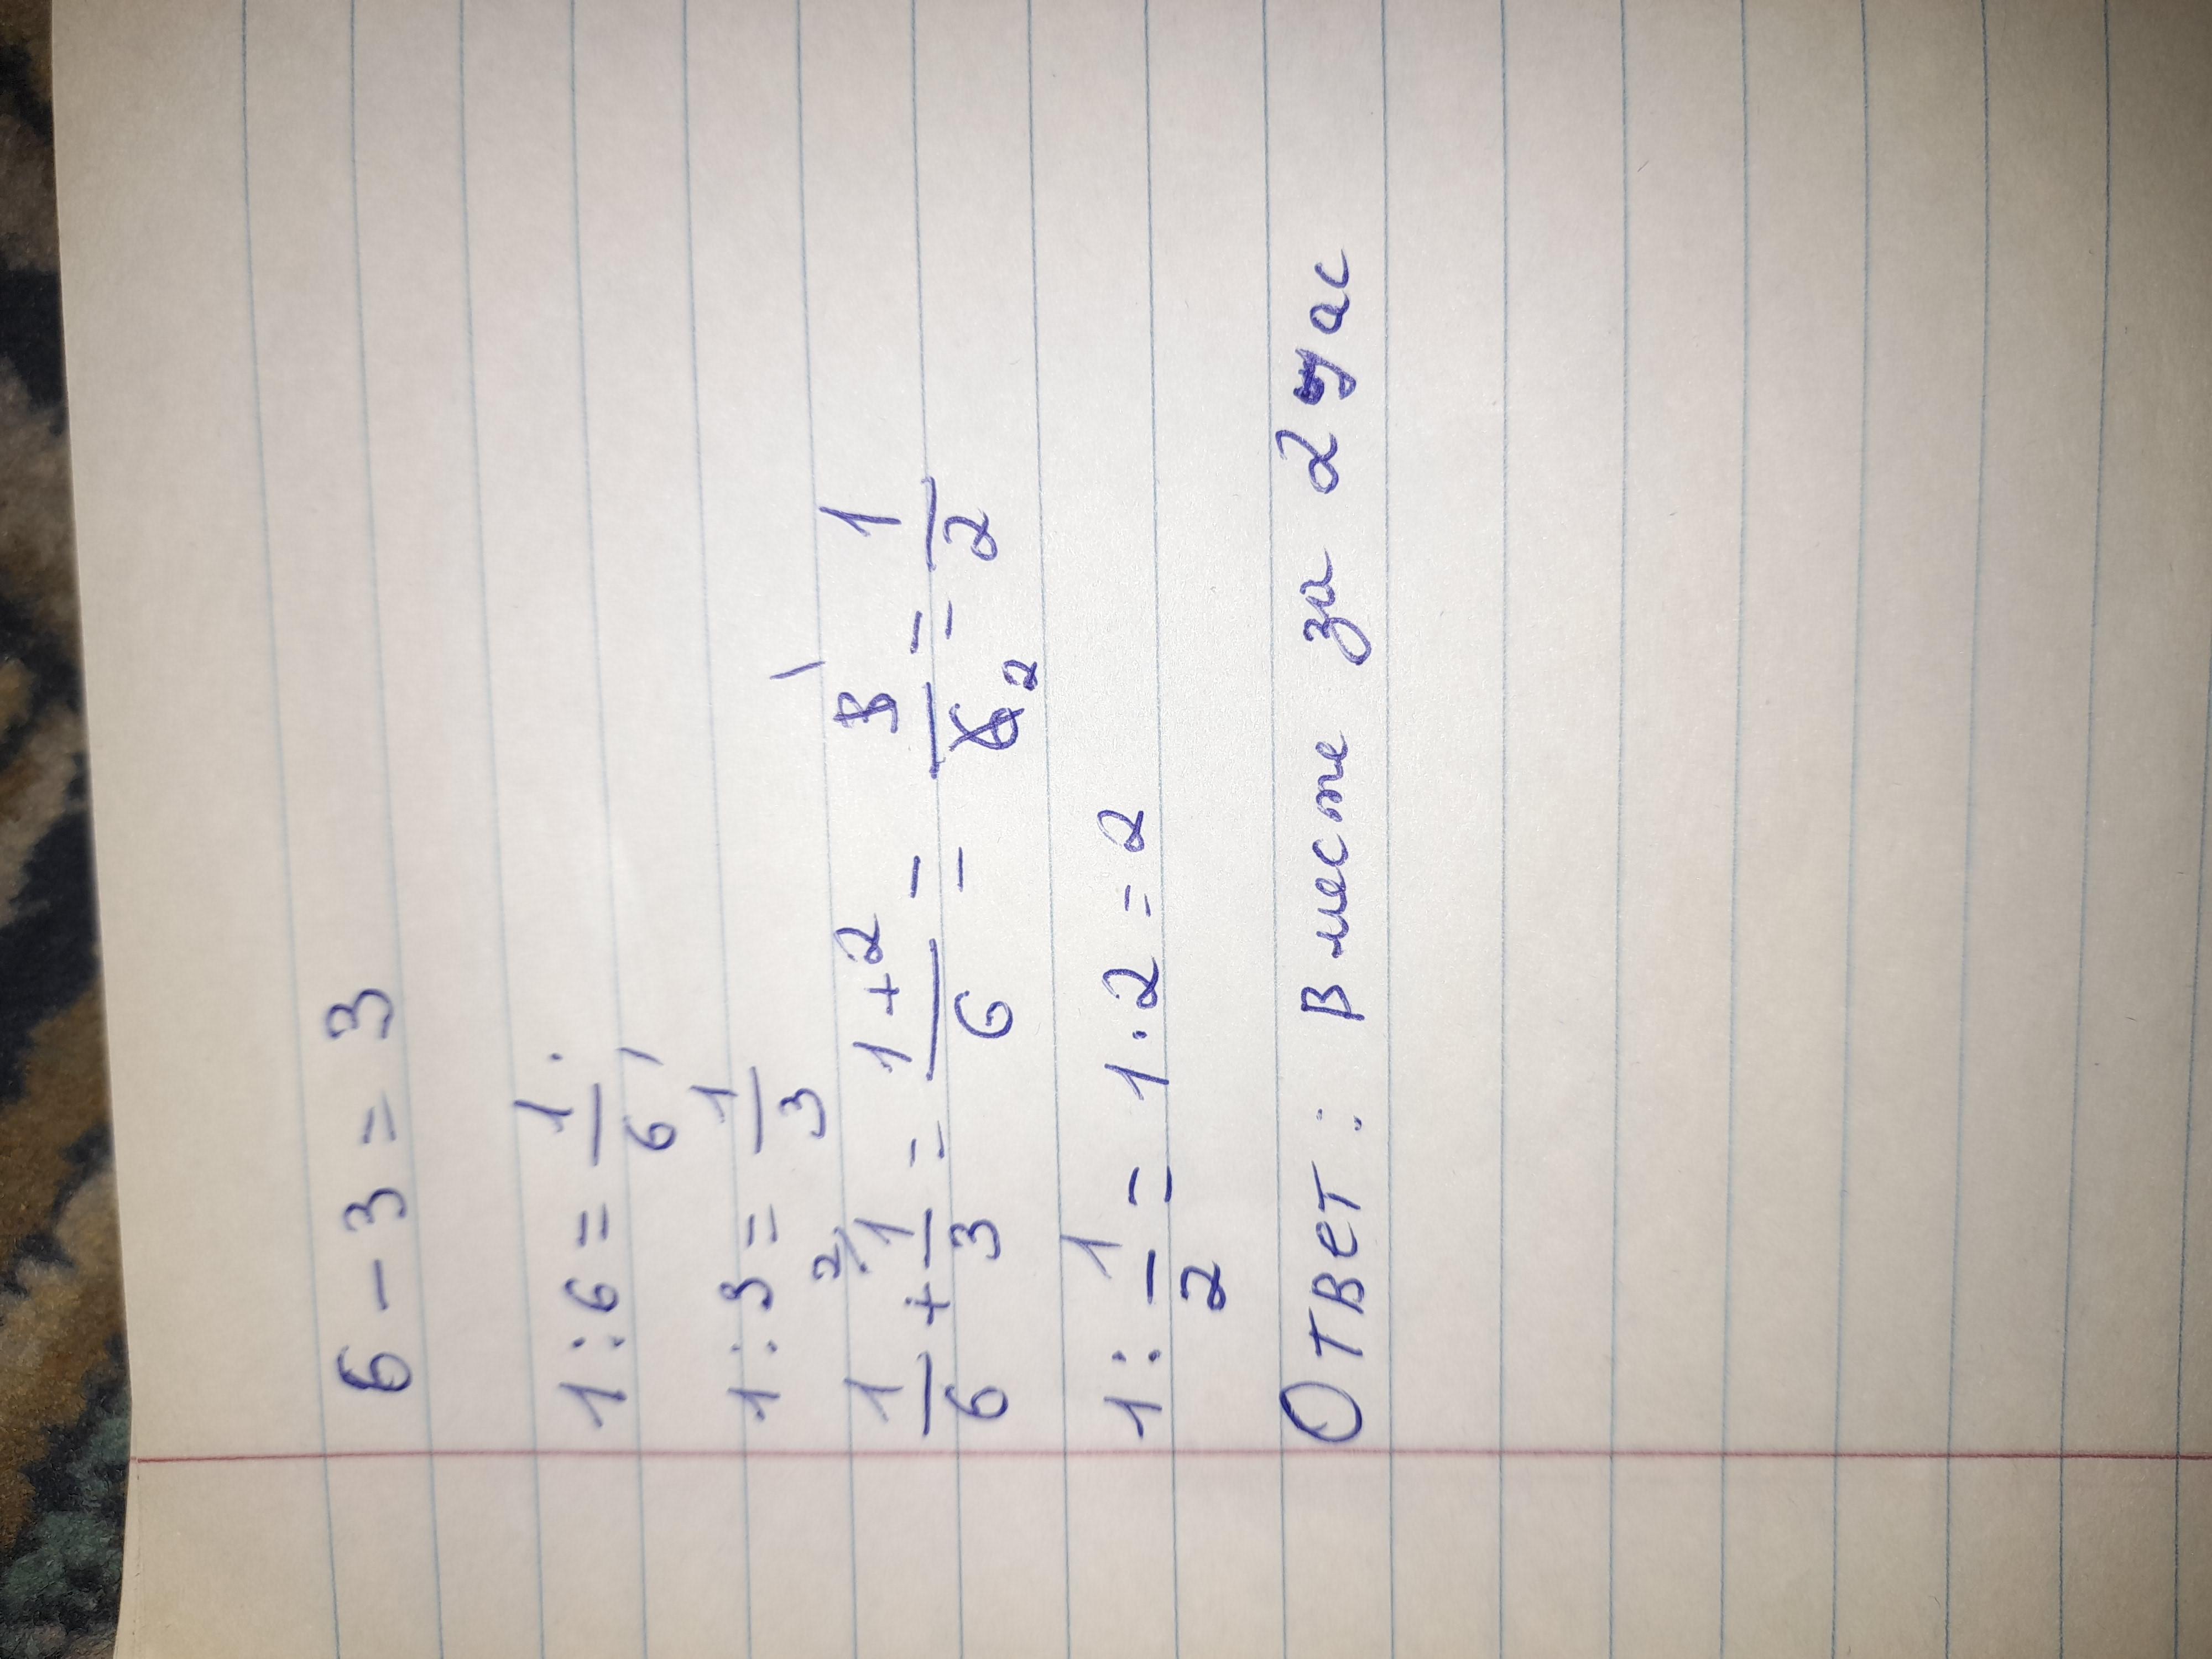 6 - 3 = 3
1 : 6 = 1/6
1 : 3 = 1/3
1/6 + ²⁾1/3 = (1+2)/6 = 3¹/6₂ = 1/2
1 : 1/2 = 1 · 2 = 2
Ответ : Вместе за 2 час